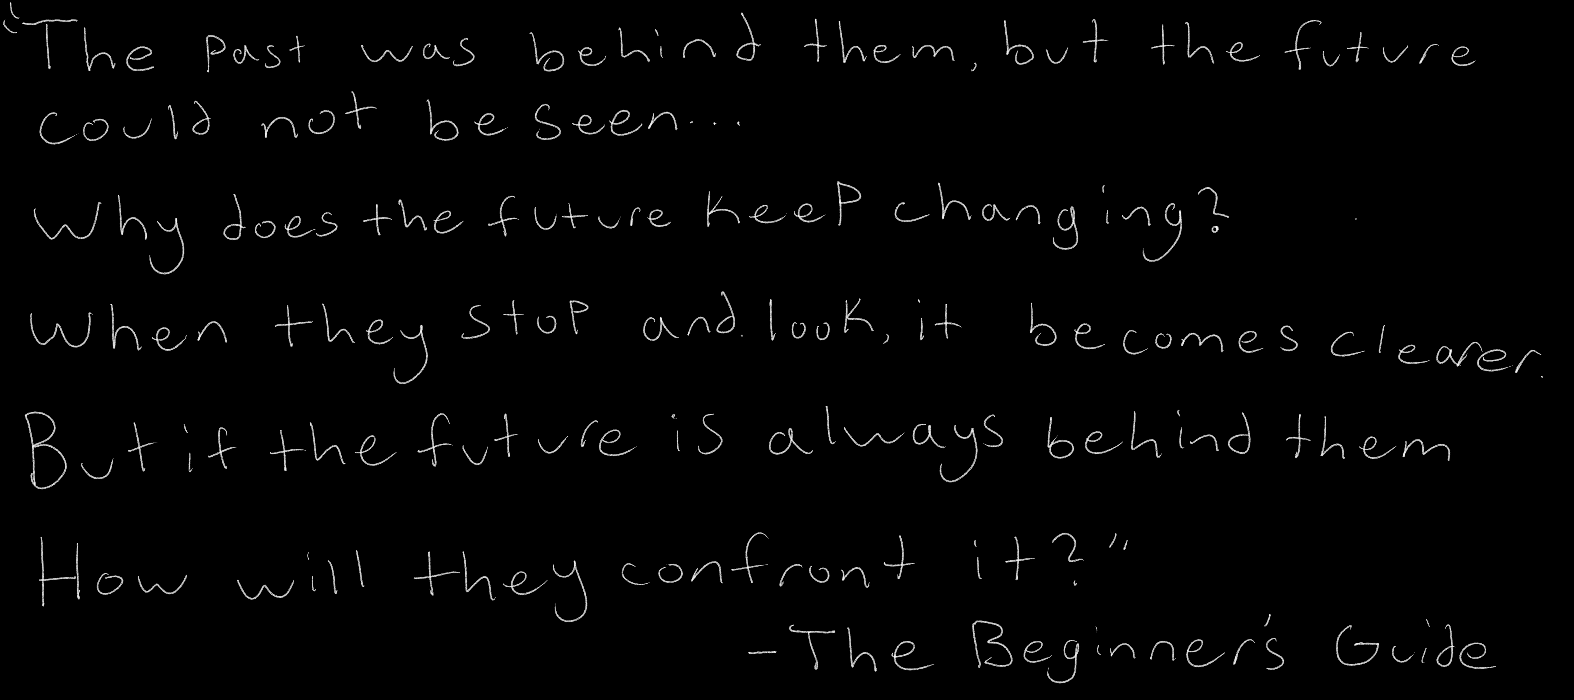 "The past was behind them, but the future
could not be seen...
Why does the future keep changing?
When they stop and look, it becomes clearer.
But if the future is always behind them
How will they confront it?"
-The Beginner's Guide